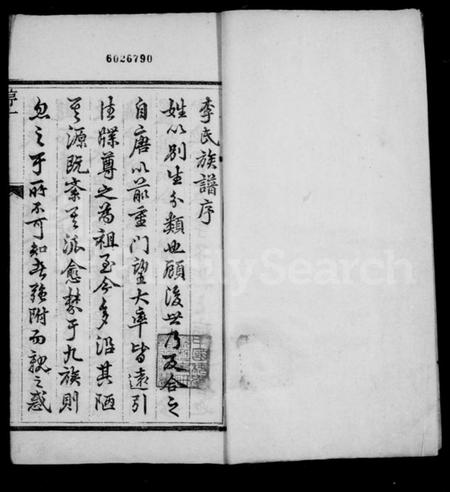 6026790
李氏族譜序
姓以別生分類也顧後世乃反合之
自唐以前重門望大率皆遠引
往牒尊之為祖至今多沿其陋
其源既紊其派愈棼于九族則
忽之于所不可知者強附而親之惑
FamilySearch